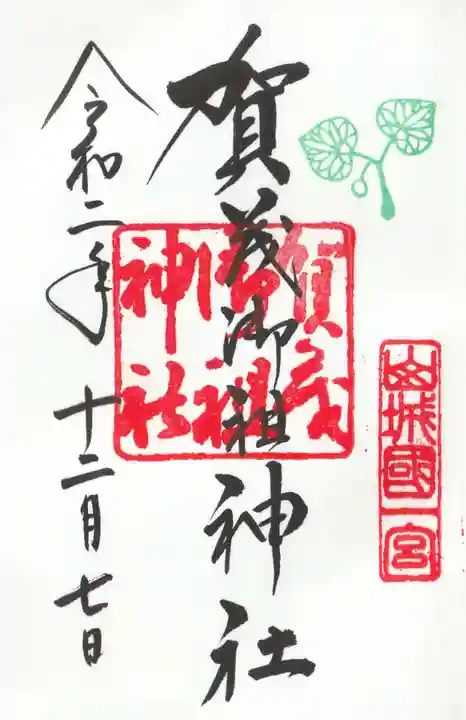 山城國一宮
賀茂御祖神社
賀茂
御祖
神社
令和二年 十二月七日